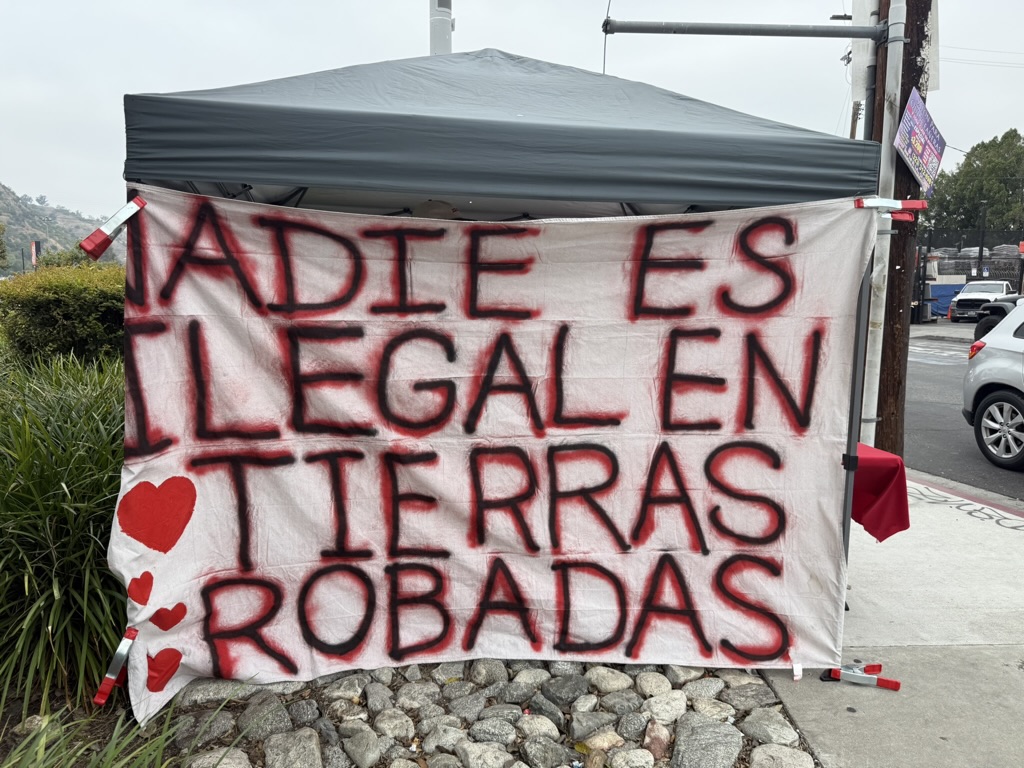 NADIE ES
ILEGAL EN
TIERRAS
ROBADAS